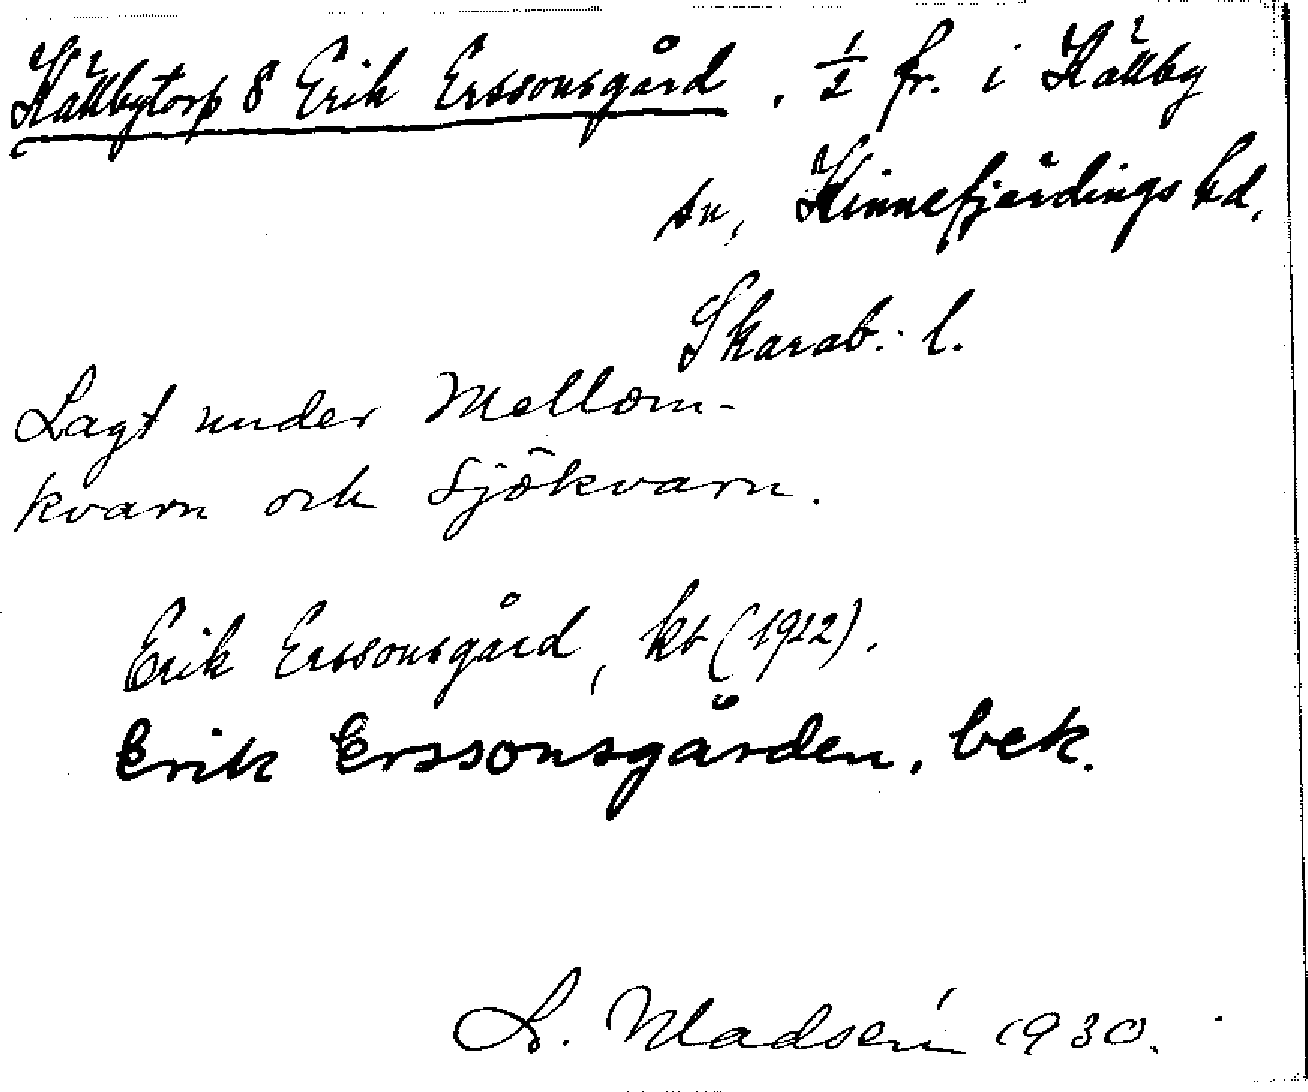 Källbytorp 8 Erik Erssonsgård, 1/2 fr. i Källby
sn, Kinnefjärdings hd,
Skarab. l.
Lagt under Mellom-
kvarn och Sjökvarn.
Erik Erssonsgård, kt (1912).
Erik Erssonsgården, bek.
L. Madsén 1930.